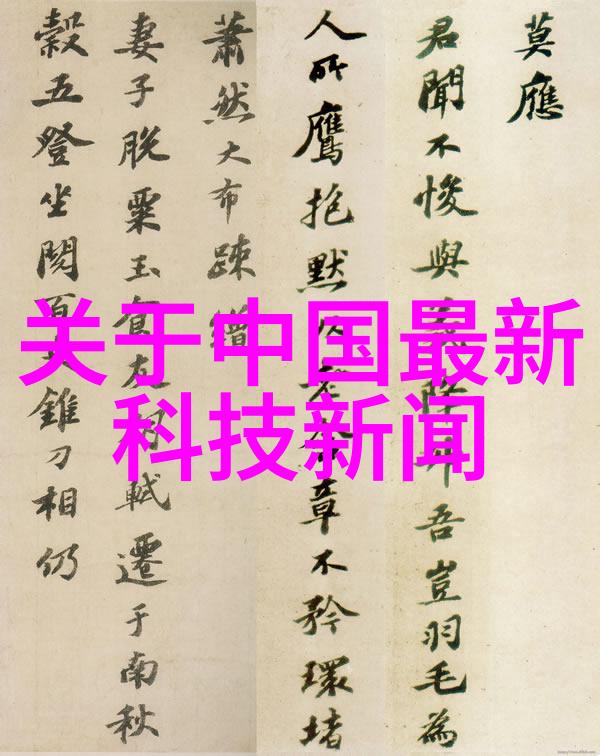 莫應
君聞不悛與降升吾豈羽毛為
人所鷹抱默以老含章不矜環堵
蕭然大布疎繒
妻子脫粟玉食友朋軾遷于南秋
穀五登坐閱百夫錐刀相仍
关于中国最新
科技新闻